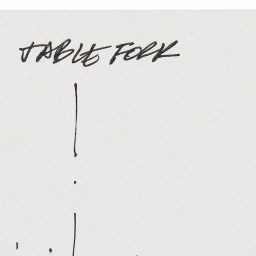 TABLE FORK